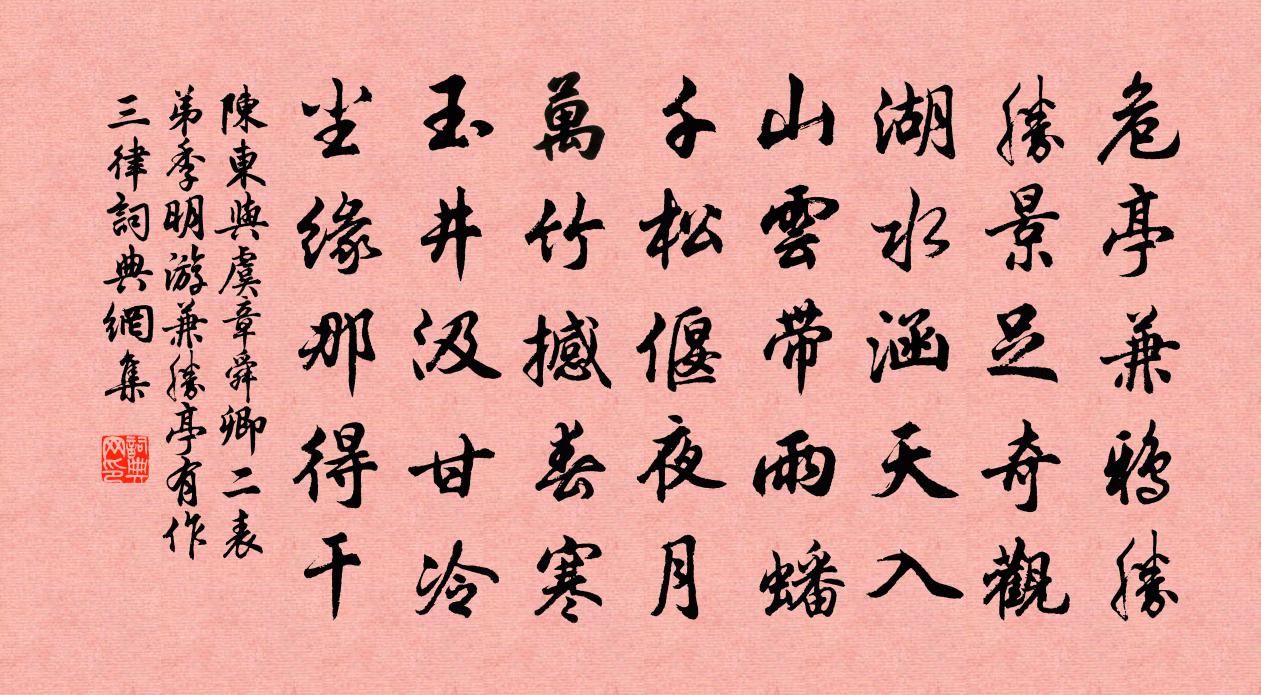 危亭兼鴉勝
勝景足奇觀
湖水涵天入
山雲帶雨蟠
千松偃夜月
萬竹撼春寒
玉井汲甘冷
塵緣那得干
陳東與虞章舜卿二表
弟季明游兼勝亭有作
三律詞典網集
詞典
网印